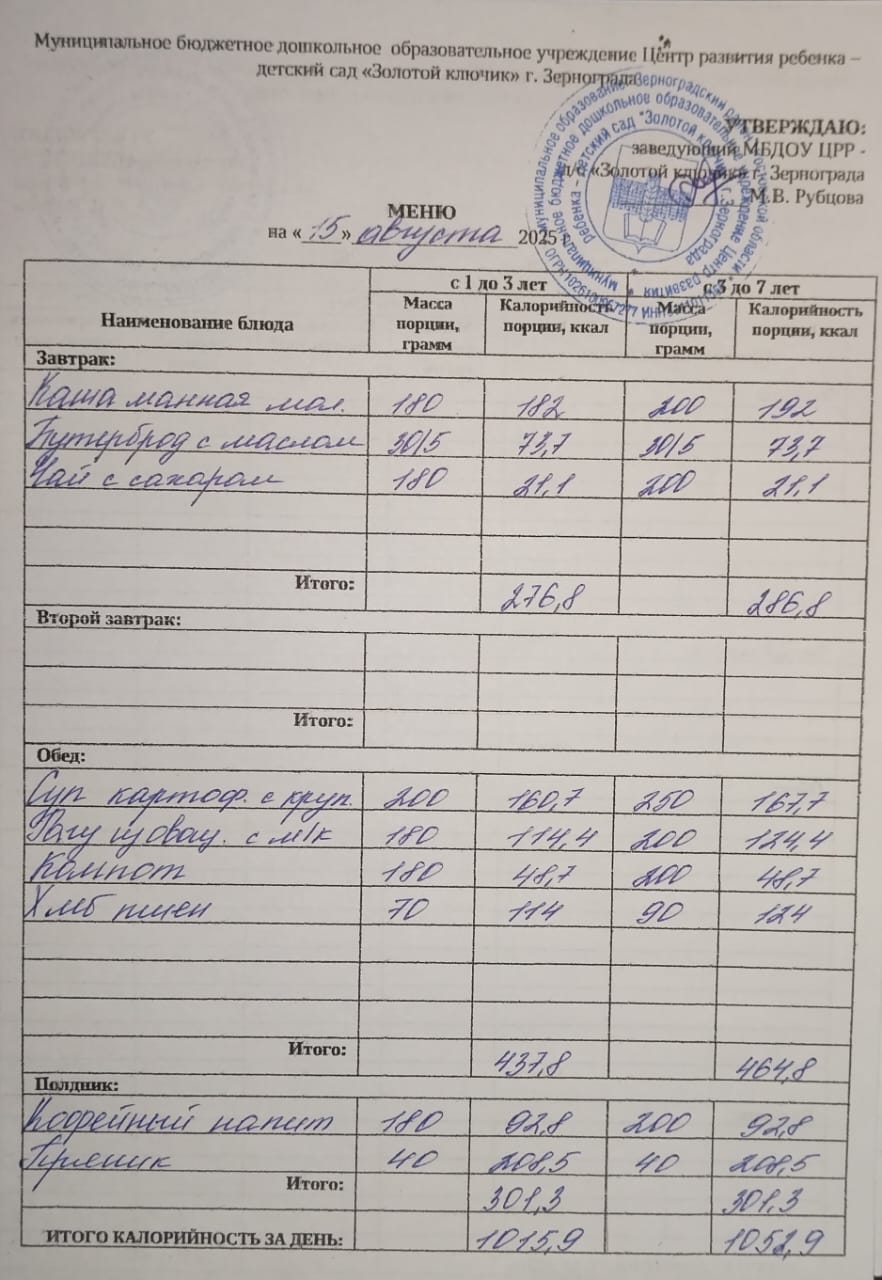 Муниципальное бюджетное дошкольное образовательное учреждение Центр развития ребенка –
детский сад «Золотой ключик» г. Зернограда
УТВЕРЖДАЮ:
заведующий МБДОУ ЦРР -
д/с «Золотой ключик» г. Зернограда
М.В. Рубцова
МЕНЮ
на «15» августа 2025 г.
с 1 до 3 лет с 3 до 7 лет
Наименование блюда Масса порции, грамм Калорийность порции, ккал Масса порции, грамм Калорийность порции, ккал
Завтрак:
Каша манная мол. 180 182 200 192
Бутерброд с маслом 30/5 73,7 30/5 73,7
Чай с сахаром 180 21,1 200 21,1
Итого: 276,8 286,8
Второй завтрак:
Итого:
Обед:
Суп картоф. с круп. 200 160,7 250 167,7
Рагу из овощ. с м/к 180 114,4 200 124,4
Компот 180 48,7 200 48,7
Хлеб пшен 70 114 90 124
Итого: 437,8 464,8
Полдник:
Кофейный напит 180 92,8 200 92,8
Пряник 40 208,5 40 208,5
Итого: 301,3 301,3
ИТОГО КАЛОРИЙНОСТЬ ЗА ДЕНЬ: 1015,9 1052,9